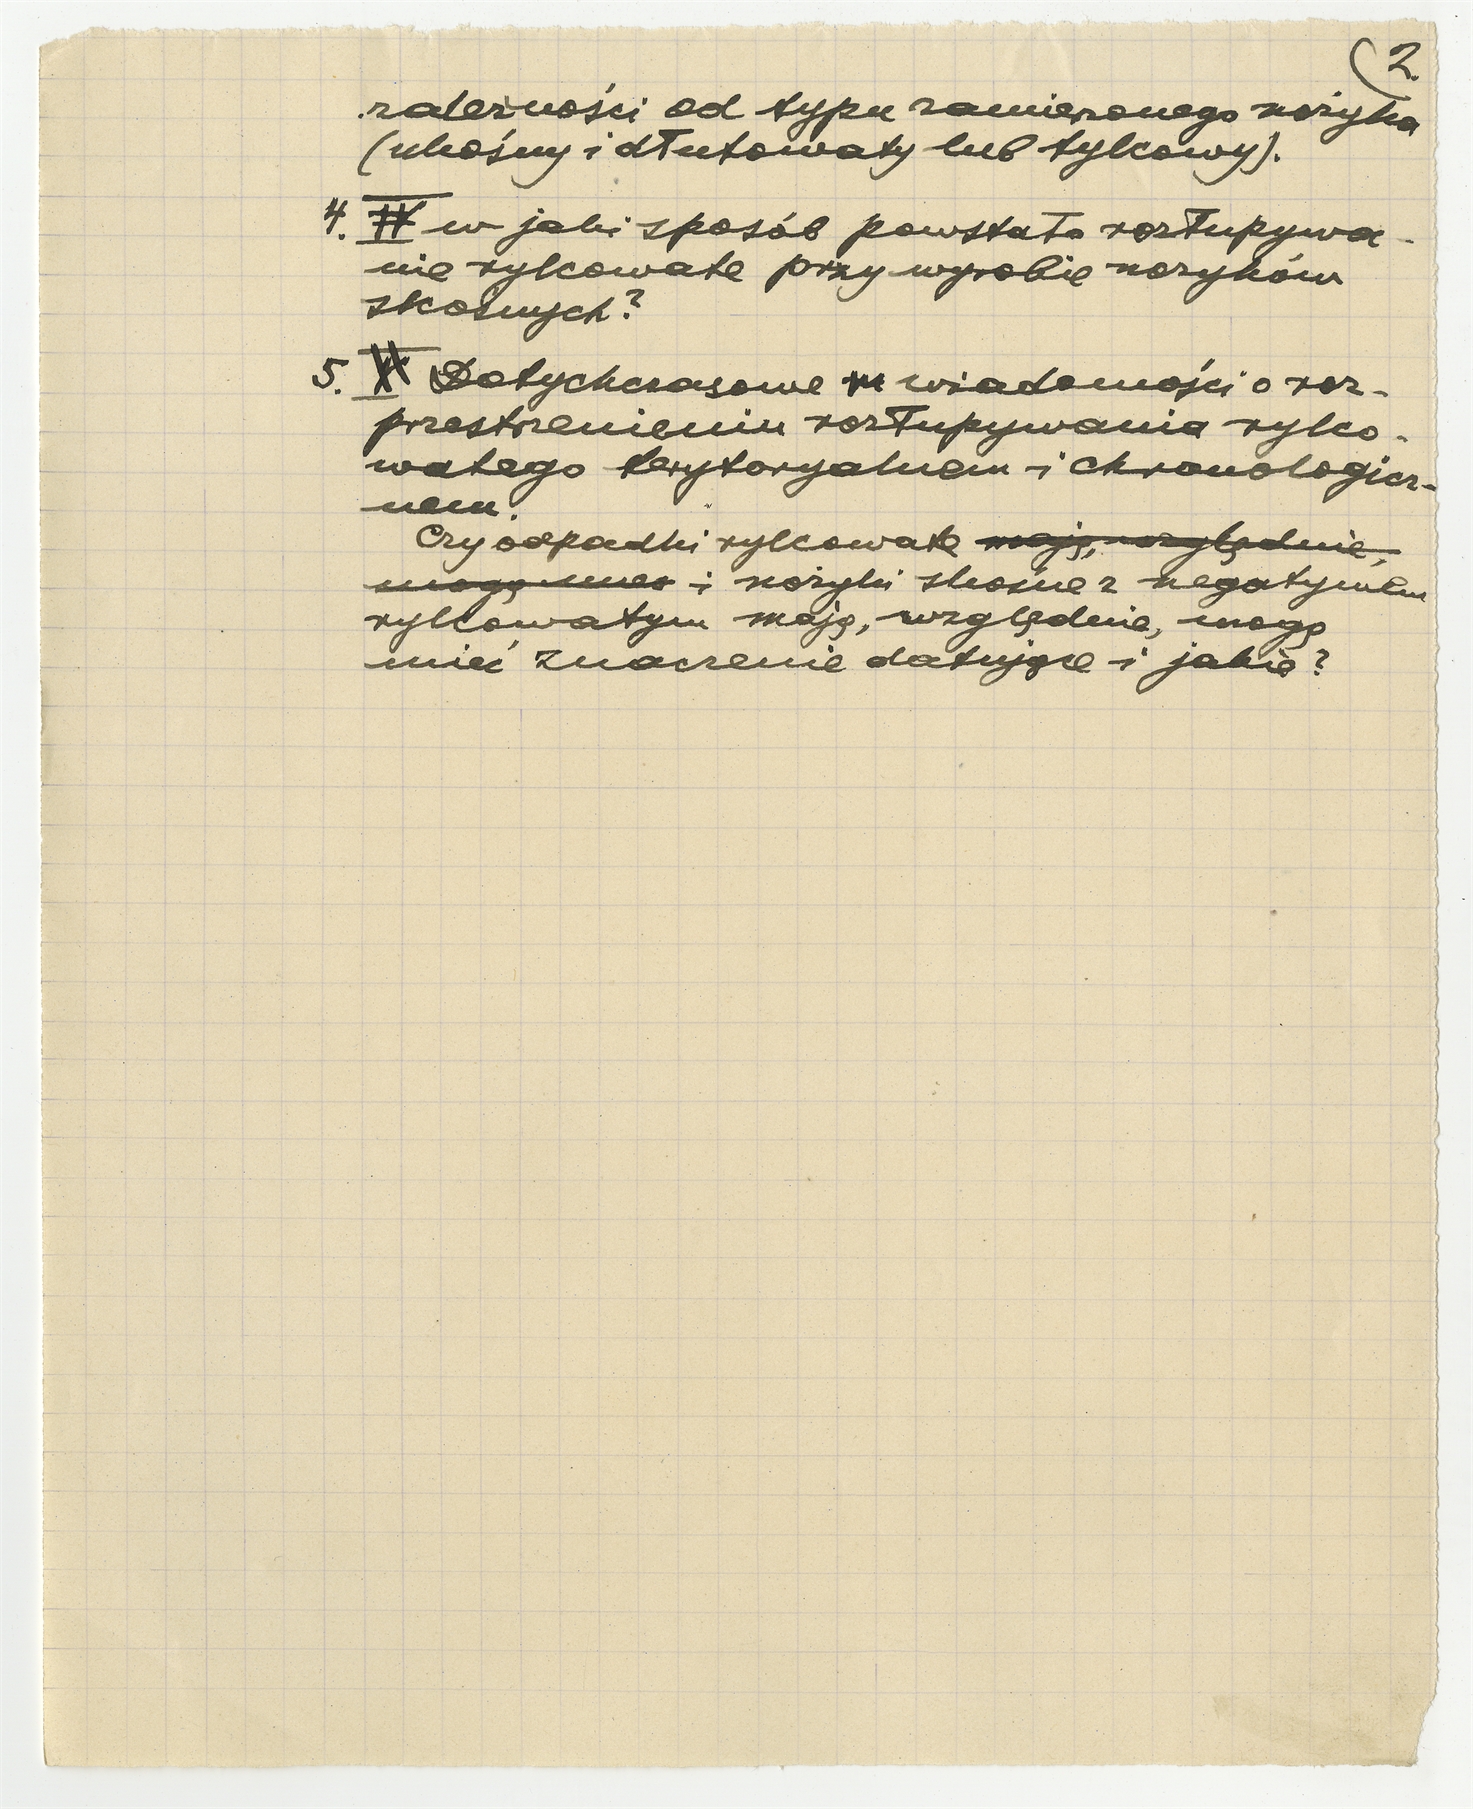 2.
zależności od typu zamierzonego nożyka
(ukośny i dłutowaty lub tylcowy).
4. IV w jaki sposób powstało rozłupywa-
nie rylcowate przy wyrobie nożyków
skośnych?
5. V Dotychczasowe wiadomości o roz-
przestrzenieniu rozłupywania rylco-
watego terytoryalnem i chronologicz-
nem.
Czy odpadki rylcowate mają, względnie,
mogą mieć i nożyki skośne z negatywem
rylcowatym mają, względnie, mogą
mieć znaczenie datujące i jakie?